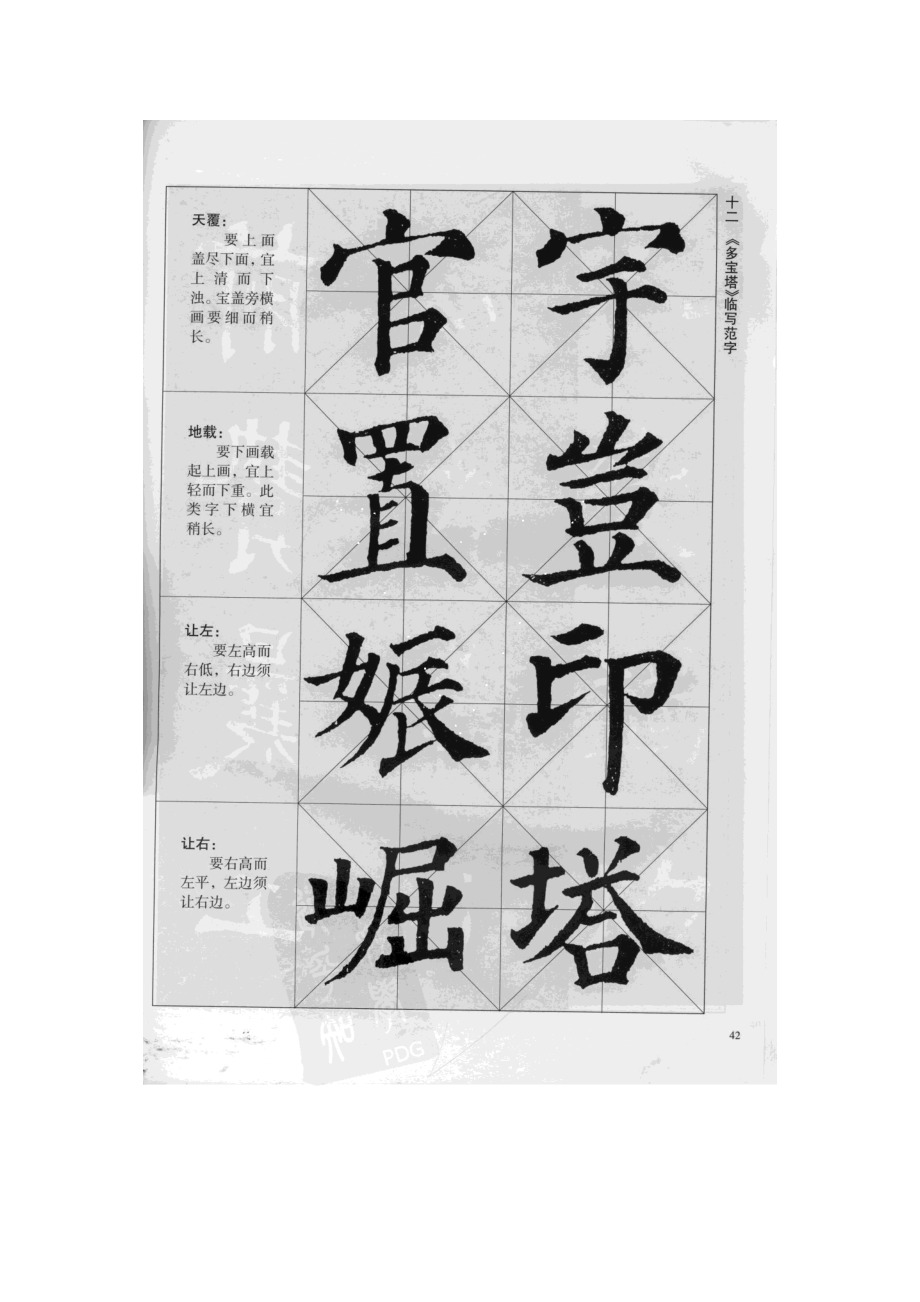 十二 《多宝塔》临写范字
天覆：
要上面
盖尽下面，宜
上清而下
浊。宝盖旁横
画要细而稍
长。
官 宇
地载：
要下画载
起上画，宜上
轻而下重。此
类字下横宜
稍长。
置 豈
让左：
要左高而
右低，右边须
让左边。
娠 印
让右：
要右高而
左平，左边须
让右边。
崛 塔
42
PDG